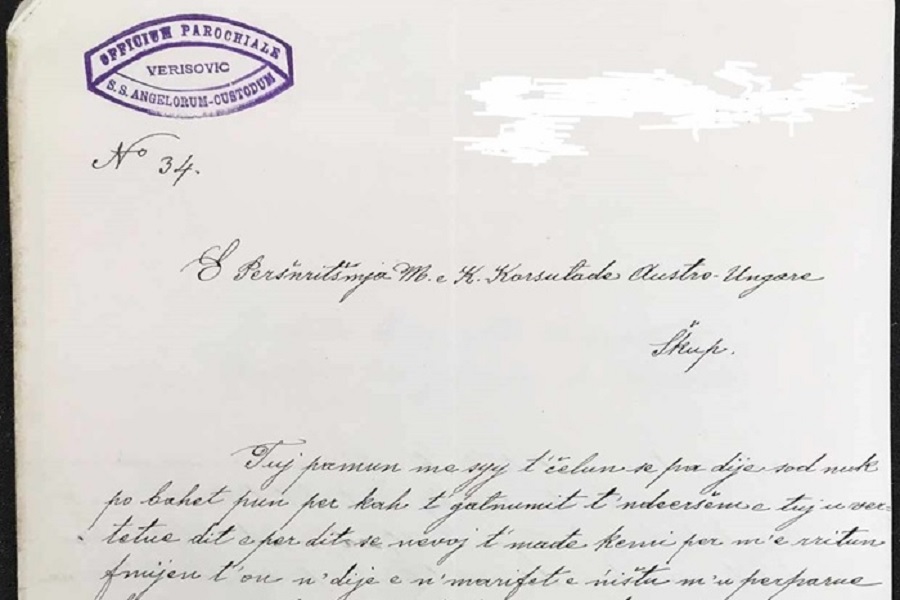 OFFICIUM PAROCHIALE
VERISOVIC
S.S. ANGELORUM-CUSTODUM
No 34.
E Peršnritšmja M. e K. Korsulade Austro-Ungare
Škup.
Tuj pamun me syy t'čelun se pa dije sod nuk
po bahet pun per kah t' gatnumit t' ndeeršem e tuj u ver-
tetue dit e per dit se nevoj t' made kemi per m'e rritun
fmijen t' on n' dije e n' marifet e ništu m'u perparue